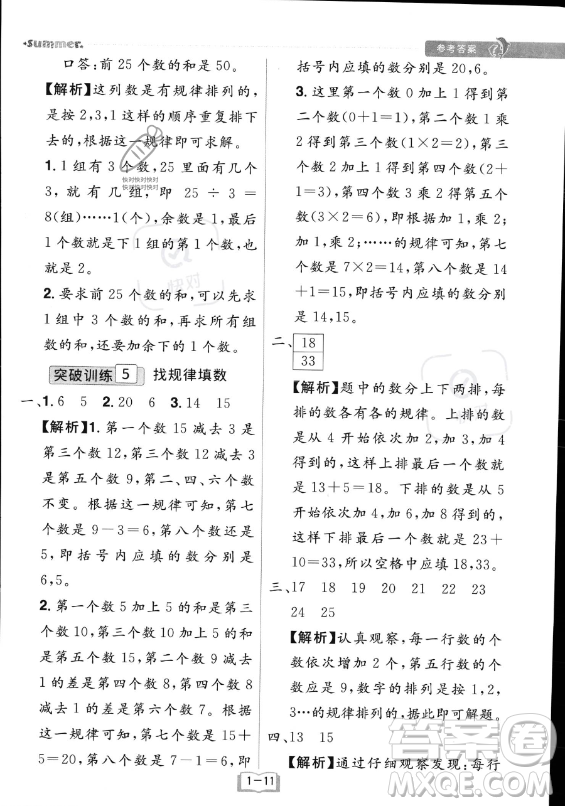 summer.
参考答案
口答：前 25 个数的和是 50。
【解析】这列数是有规律排列的，
是按 2,3,1 这样的顺序重复排下
去的，按照这一规律即可求解。
1. 1 组有 3 个数，25 里面有几个
3，就有几组，即 25 ÷ 3 =
8(组)……1(个)，余数是 1，最后
一个数就是下 1 组的第一个数，
也就是 2。
2. 要求前 25 个数的和，可以先求
1 组中 3 个数的和，再求 8 组数
的和，还要加余下的 1 个数。
突破训练 5 找规律填数
一、1. 6 5 2. 20 6 3. 14 15
【解析】1. 第一个数 15 减去 3 是
第三个数 12，第三个数 12 减去 3
是第五个数 9，第二、四、六个数
不变。按照这一规律可知，第七
个数是 9－3＝6，第八个数还是
5，即括号内应填的数分别是
6,5。
2. 第一个数 5 加上 5 的和是第
三个数 10，第三个数 10 加上 5
的和是第五个数 15；第二个数 9
与 1 的差是第四个数 8，第四个
数 8 与 1 的差是第六个数 7。按
照这一规律可知，第七个数是 15
＋5＝20，第八个数是 7－1＝6，即
括号内应填的数分别是 20,6。
3. 这里第一个数加 1 得到第
二个数(0＋1＝1)，第二个数
乘 2 得到第三个数(1×2＝
2)，第三个数加 1 得到第四
个数(2＋
1＝3)，第四个数乘 2 得到第五个
数(3×2＝6)，即按照加 1，乘 2；
加 1，乘 2；…的规律可知，第七
个数是 7×2＝14，第八个数是 14
＋1＝15，即括号内应填的数分别
是 14,15。
二、18
33
【解析】题中的数分上下两排，每
排的数各有各的规律。上排的数
是从 4 开始依次加 1,2,3,4,5 得
到的，因此上排的最后一个数就
是 13＋5＝18。下排的数，是从 5
开始依次加 1,3,4,10 得到
的，因此下排最后一个数是 23＋
10＝33，所以空格中应填 18,33。
三、17 18 19 20 21 22
24 25
【解析】认真观察，每一行的个
数依次增加 2 个，第五行的数
个数应是 9，数字的排列是按 1,
2,3…的规律排列，即可解题。
四、13 15
【解析】通过仔细观察发现：每行
1－11
快对
答案圈
MXQE.COM